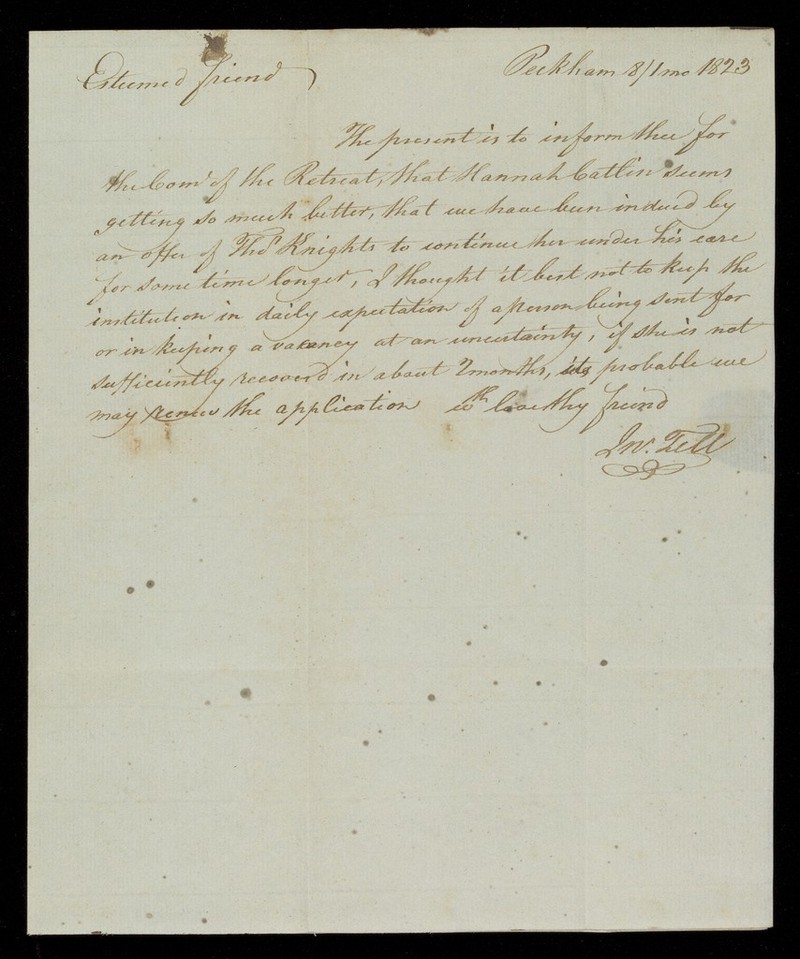 Esteemed friend
Peckham 8/1 mo 1823
The present is to inform thee for
the Comt of the Retreat, that Hannah Catlin seems
getting so much better, that we have been induced by
an offer of Thos Knights to continue her under his care
for some time longer, I thought it best not to keep the
institution in daily expectation of a person being sent for
or in keeping a vacancy at an uncertainty, if she is not
sufficiently recoverd in about 2 months, its probable we
may renew the application wth love thy friend
Jno. Tell